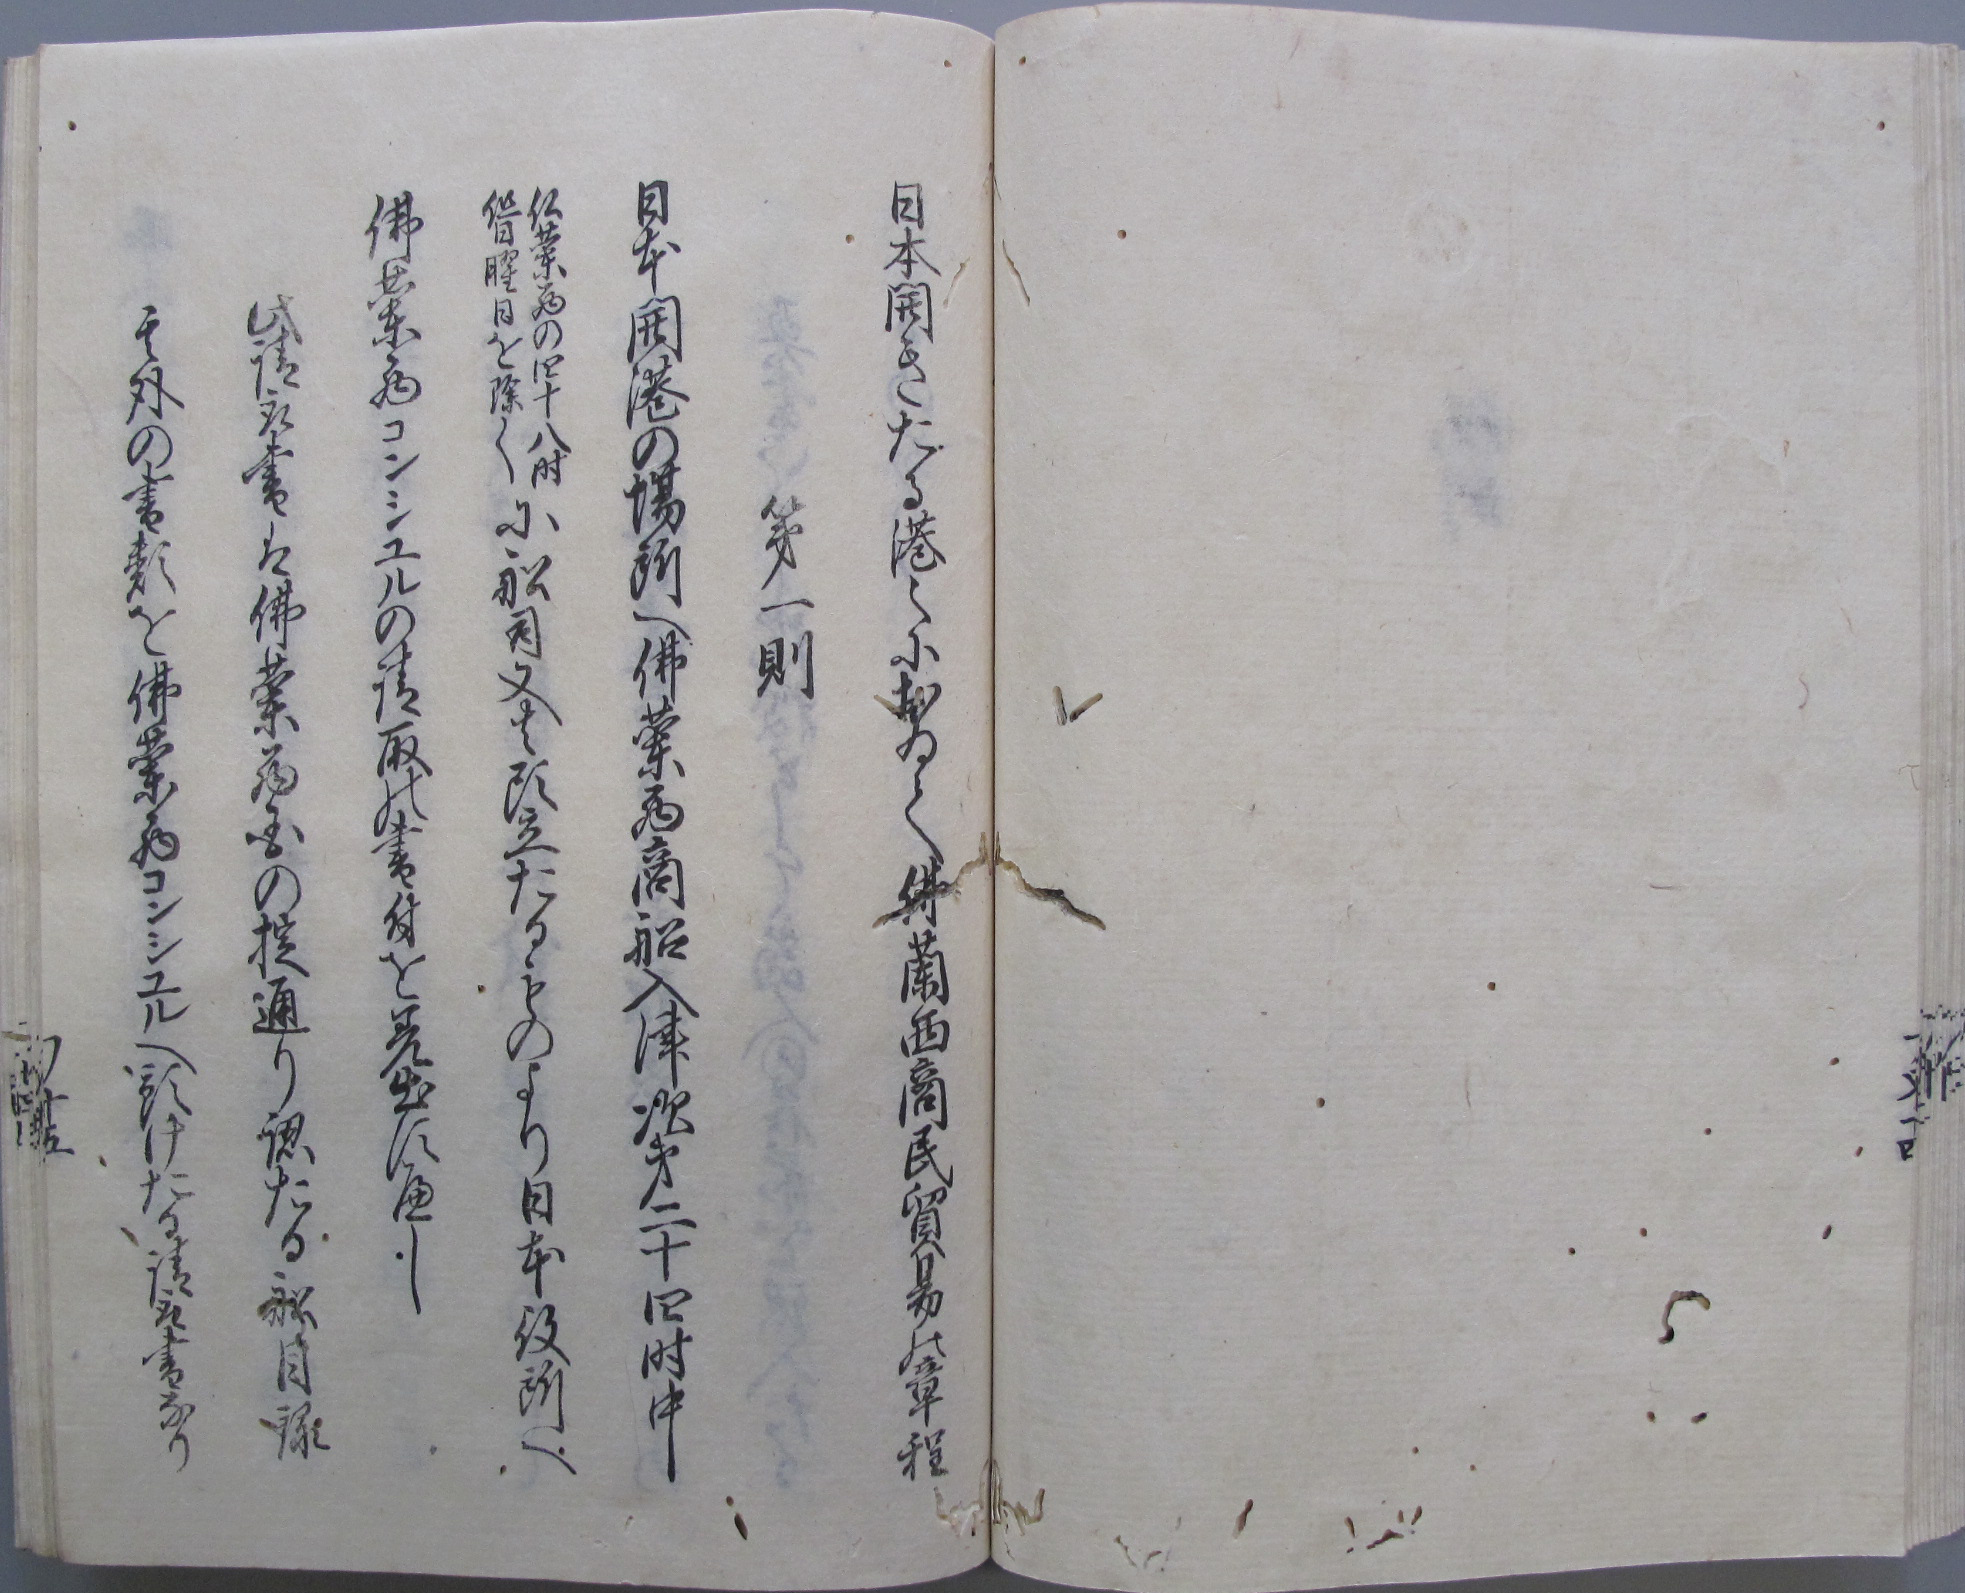 日本開きたる港々におゐて佛蘭西商民貿易の章程
第一則
日本開港の場所へ佛蘭西商船入津次第二十四時中
仏蘭西の四十八时
但日曜日を除く
に船司又ハ頭立たるものより日本役所へ
佛蘭西コンシユルの請取の書付を差出す遍し
此請取書ハ佛蘭西国の掟通り認たる船目録
其外の書類を佛蘭西コンシユルへ預けたる請取書なり